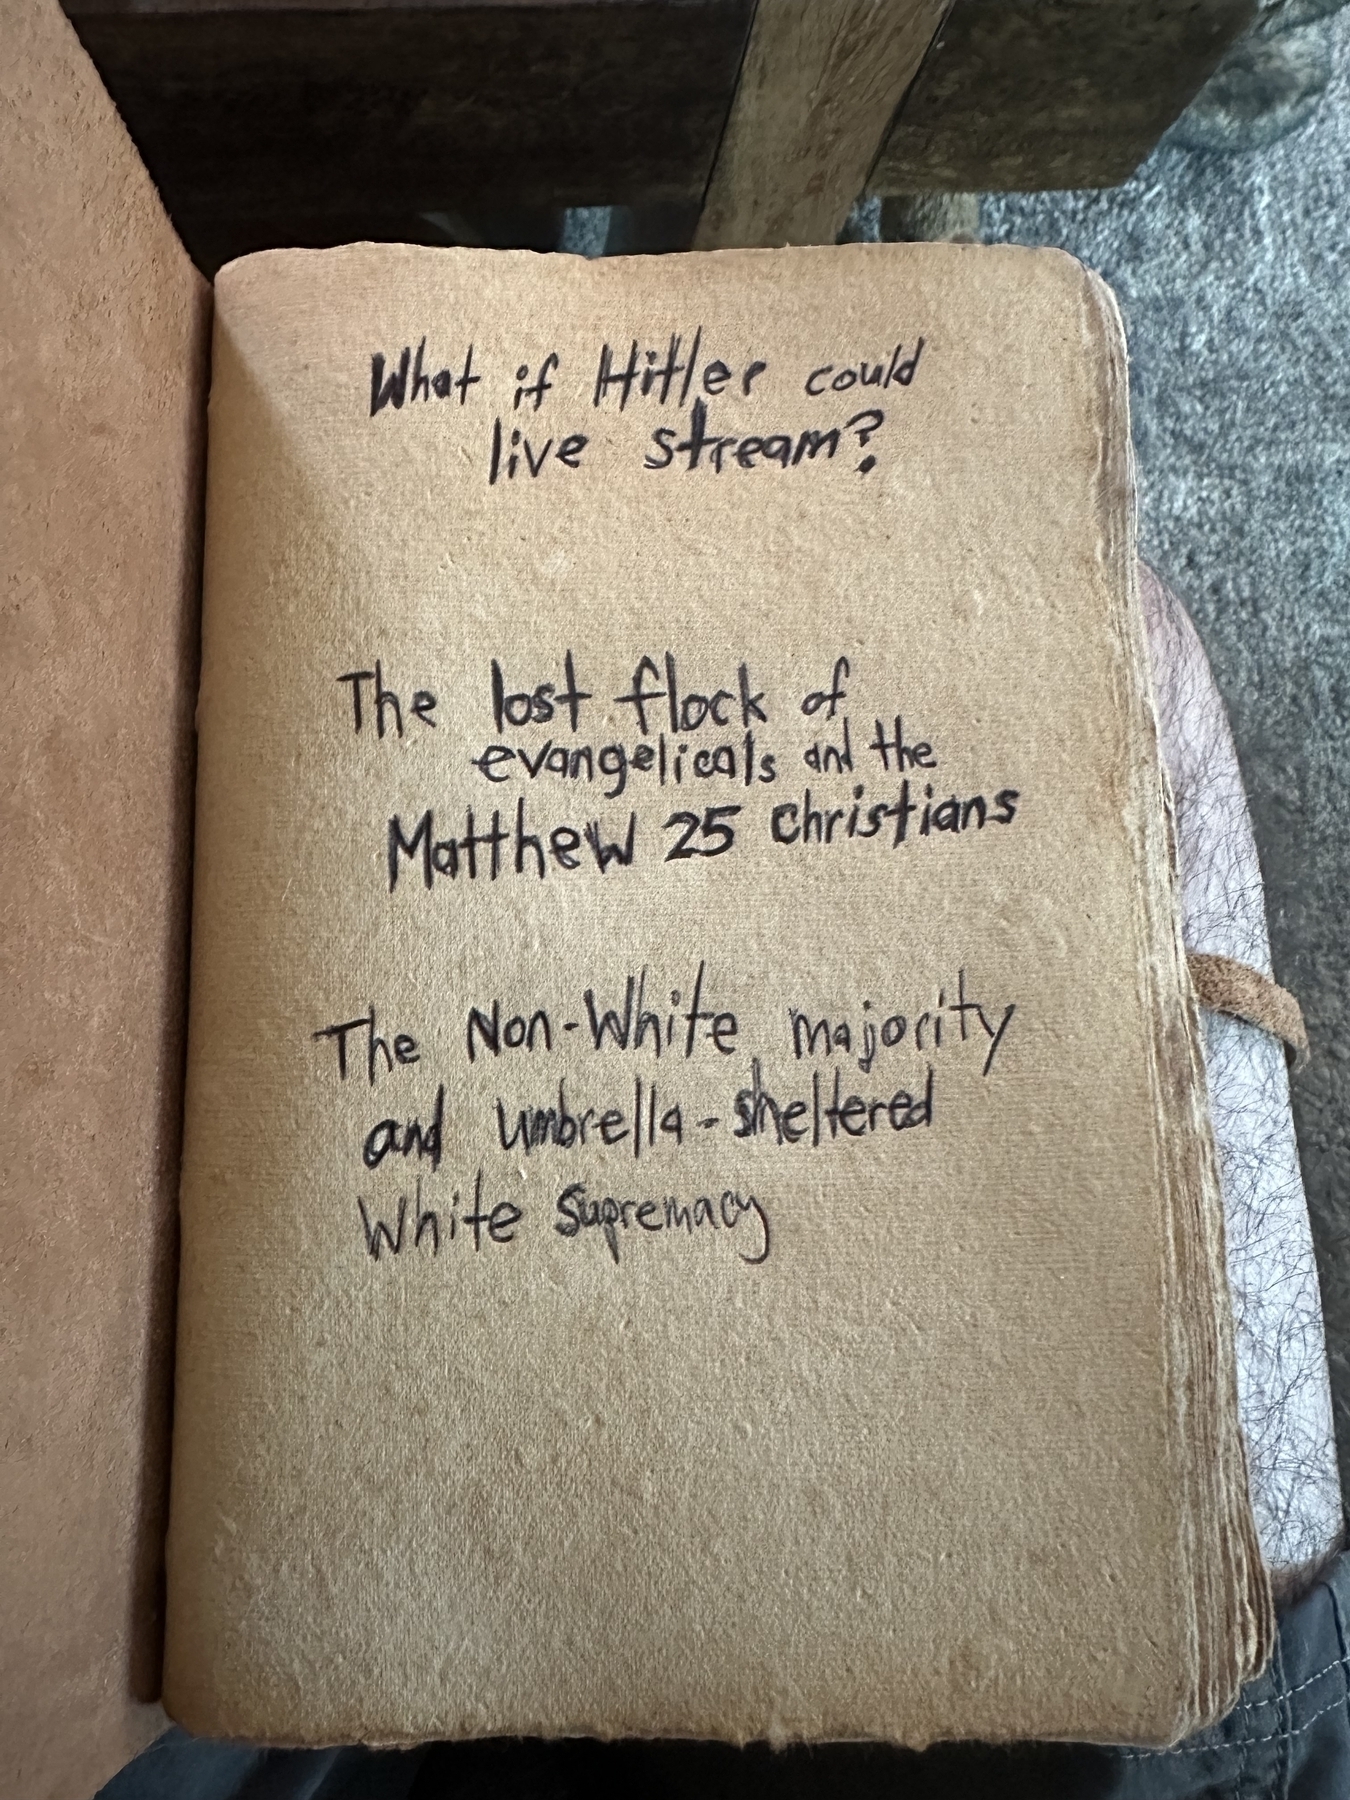 What if Hitler could
live stream?
The lost flock of
evangelicals and the
Matthew 25 Christians
The Non-White majority
and umbrella-sheltered
White Supremacy